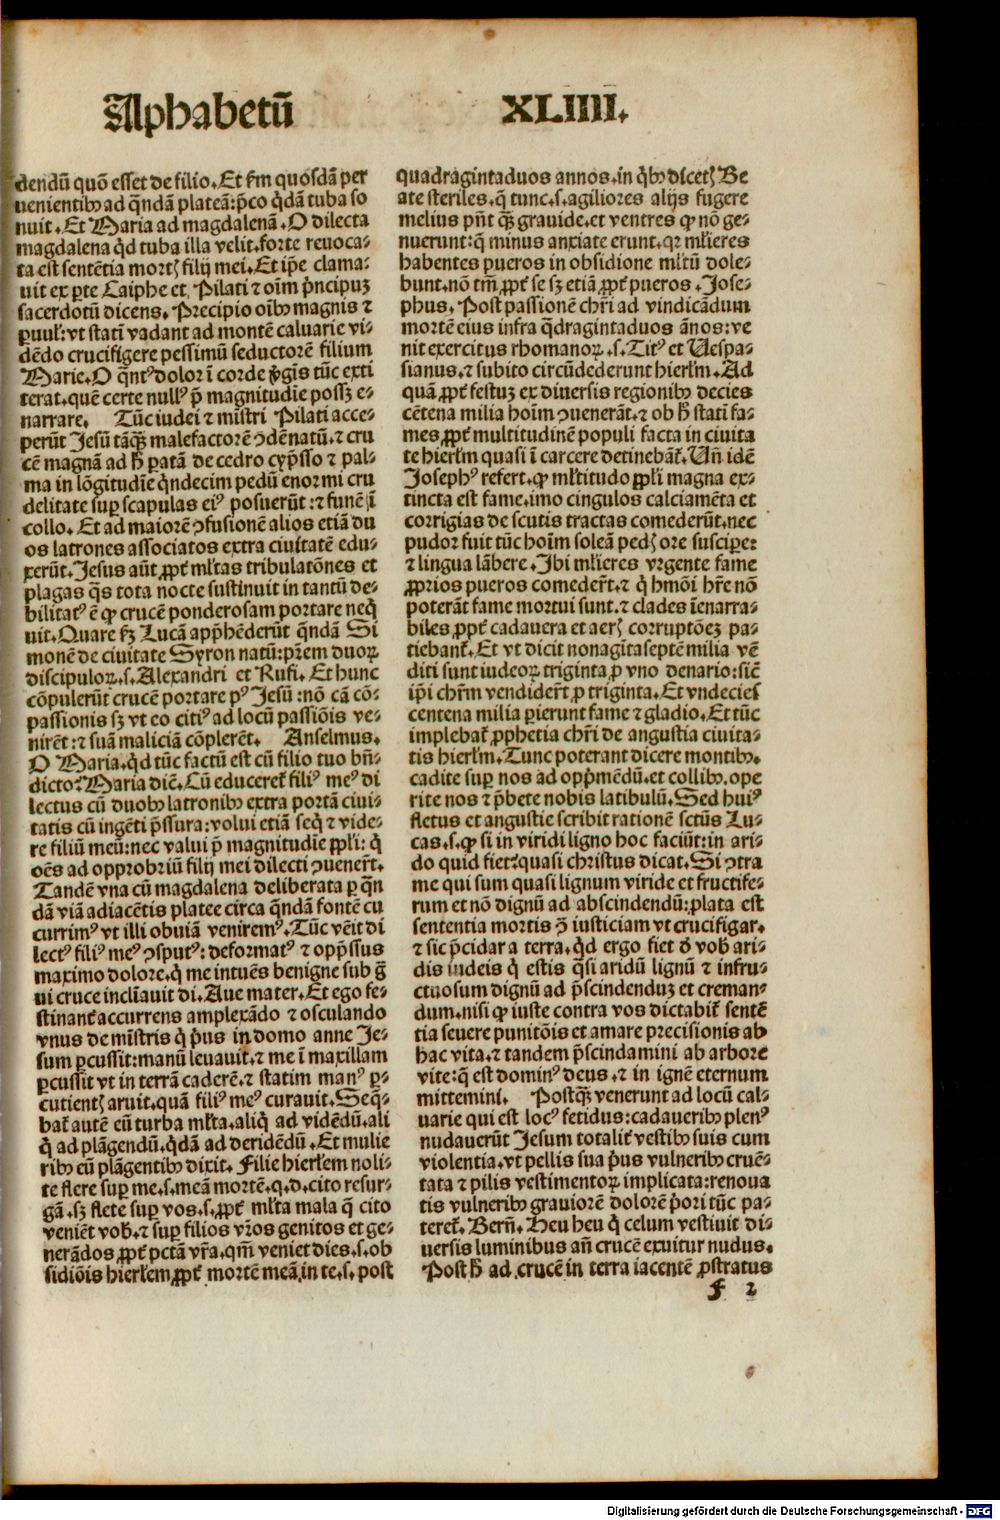 Alphabetū
XLIIII.
dendū quō esset de filio. Et ẜm quosdā per
uenientibꝰ ad q̄ndā plateā: p̄co q̄dā tuba so
nuit. Et Maria ad magdalenā. O dilecta
magdalena qd̄ tuba illa velit. forte reuoca-
ta est sentētia mortꝭ filij mei. Et ip̄e clama-
uit ex ꝑte Caiphe et Pilati ⁊ oīm p̄ncipuꝫ
sacerdotū dicens. Precipio oībꝰ magnis ⁊
ꝑuul': vt statī vadant ad montē caluarie vi-
dēdo crucifigere pessimū seductorē filium
Marie. O q̄ntꝰ dolor ī corde v̓gīs tūc exti
terat. quē certe nullꝰ p̄ magnitudīe possꝫ e-
narrare. Tūc iudei ⁊ mīstri Pilati acce-
perūt Jesū tāqꝫ malefactorē ꝯdēnatū. ⁊ cru
cē magnā ad h̄ ꝑatā de cedro cyp̄sso ⁊ pal-
ma in lōgitudīe q̄ndecim pedū enormi cru
delitate suꝑ scapulas eiꝰ posuerūt: ⁊ funē ī
collo. Et ad maiorē ꝯfusionē alios etiā du
os latrones associatos extra ciuitatē edu-
xerūt. Jesus aūt ꝓpt̄ ml̄tas tribulatōnes et
plagas q̄s tota nocte sustinuit in tantū de-
bilitatꝰ ē ꝙ crucē ponderosam portare neq̄
uit. Quare ẜꝫ Lucā app̄hēderūt q̄ndā Si
monē de ciuitate Syron natū: pr̄em duoꝝ
discipuloꝝ. s. Alexandri et Rufi. Et hunc
cōpulerūt crucē portare pꝰ Jesū: nō cā cō-
passionis sꝫ vt eo citiꝰ ad locū passiōis ve-
nirēt: ⁊ suā maliciā cōplerēt. Anselmus.
O Maria. qd̄ tūc factū est cū filio tuo bn̄-
dicto? Maria diē. Cū educeret̄ filiꝰ meꝰ di
lectus cū duobꝰ latronibꝰ extra portā ciui-
tatis cū ingēti p̄ssura: volui etiā seq̄ ⁊ vide-
re filiū meū: nec valui p̄ magnitudīe ppl̄i: q̄
oēs ad opprobriū filij mei dilecti ꝯuener̄t.
Tandē vna cū magdalena deliberata ꝑ q̄n
dā viā adiacētis platee circa q̄ndā fontē cu
currimꝰ vt illi obuiā veniremꝰ. Tūc vēit di
lectꝰ filiꝰ meꝰ ꝯsputꝰ: deformatꝰ ⁊ opp̄ssus
maximo dolore. q̄ me intuēs benigne sub ḡ
ui cruce inclīauit di. Aue mater. Et ego fe-
stinant̄ accurrens amplexādo ⁊ osculando
vnus de mīstris q̄ p̄us in domo anne Je-
sum ꝑcussit: manū leuauit. ⁊ me ī maxillam
ꝑcussit vt in terrā caderē. ⁊ statim manꝰ ꝑ-
cutientꝭ aruit. quā filiꝰ meꝰ curauit. Seq̄-
bat̄ autē eū turba ml̄ta. aliq̄ ad vidēdū. ali
q̄ ad plāgendū. q̄dā ad deridēdū. Et mulie
ribꝰ eū plāgentibꝰ dixit. Filie hierl̄em noli-
te flere suꝑ me. s. meā mortē. q. d. cito resur-
gā. sꝫ flete suꝑ vos. s. ꝓpt̄ ml̄ta mala q̄ cito
veniēt vob̄. ⁊ suꝑ filios vr̄os genitos et ge-
nerādos ꝓpt̄ pctā vr̄a. qm̄ veniet dies. s. ob
sidiōis hierl̄em ꝓpt̄ mortē meā. in te. s. post
quadragintaduos annos. in q̄bꝰ dicetꝭ Be
ate steriles. q̄ tunc. s. agiliores alijs fugere
melius pn̄t qꝫ grauide. et ventres ꝙ nō ge-
nuerunt: q̄ minus anxiate erunt. qꝛ ml̄ieres
habentes pueros in obsidione ml̄tū dole-
bunt. nō tm̄ ꝓpt̄ se sꝫ etiā ꝓpt̄ pueros. Jose-
phus. Post passionē chr̄i ad vindicādum
mortē eius infra q̄dragintaduos ānos: ve
nit exercitus rhomanoꝝ. s. Titꝰ et Vespa-
sianus. ⁊ subito circūdederunt hierl̄m. Ad
quā ꝓpt̄ festuꝫ ex diuersis regionibꝰ decies
cētena milia hoīm ꝯuenerāt. ⁊ ob h̄ statī fa-
mes ꝓpt̄ multitudinē populi facta in ciuita
te hierl̄m quasi ī carcere detinebāt̄. Vn̄ idē
Josephꝰ refert. ꝙ ml̄titudo ppl̄i magna ex-
tincta est fame. imo cingulos calciamēta et
corrigias de scutis tractas comederūt. nec
pudor fuit tūc hoīm soleā pedꝭ ore susciꝑe:
⁊ lingua lābere. Jbi ml̄ieres vrgente fame
ꝓprios pueros comeder̄t. ⁊ q̄ hmōi hr̄e nō
poterāt fame mortui sunt. ⁊ clades īenarra-
biles ꝓpt̄ cadauera et aerꝭ corruptōeꝫ pa-
tiebant̄. Et vt dicit nonagītaseptē milia vē
diti sunt iudeoꝝ triginta ꝓ vno denario: sic̄
ip̄i chr̄m vendider̄t ꝓ triginta. Et vndecies
centena milia ꝑierunt fame ⁊ gladio. Et tūc
implebat̄ ꝓphetia chr̄i de angustia ciuita-
tis hierl̄m. Tunc poterant dicere montibꝰ.
cadite suꝑ nos ad opp̄mēdū. et collibꝰ. ope
rite nos ⁊ p̄bete nobis latibulū. Sed huiꝰ
fletus et angustie scribit rationē sctūs Lu-
cas. s. ꝙ si in viridi ligno hoc faciūt: in ari-
do quid fiet? quasi christus dicat. Si ꝯtra
me qui sum quasi lignum viride et fructife-
rum et nō dignū ad abscindendū: ꝓlata est
sententia mortis ꝯ̄ iusticiam vt crucifigar.
⁊ sic p̄cidar a terra. qd̄ ergo fiet đ vob̄ ari-
dis iudeis q̄ estis q̄si aridū lignū ⁊ infru-
ctuosum dignū ad p̄scindenduꝫ et creman-
dum. nisi ꝙ iuste contra vos dictabit̄ sentē
tia seuere punitōis et amare precisionis ab
hac vita. ⁊ tandem p̄scindamini ab arbore
vite: q̄ est dominꝰ deus. ⁊ in ignē eternum
mittemini. Postqꝫ venerunt ad locū cal-
uarie qui est locꝰ fetidus: cadaueribꝰ plenꝰ
nudauerūt Jesum totalit̄ vestibꝰ suis cum
violentia. vt pellis sua p̄us vulneribꝰ cruē-
tata ⁊ pilis vestimentoꝝ implicata: renoua
tis vulneribꝰ grauiorē dolorē p̄ori tūc pa-
teret̄. Bern̄. Heu heu q̄ celum vestiuit di-
uersis luminibus an̄ crucē exuitur nudus.
Post h̄ ad crucē in terra iacentē ꝓstratus
f 2
Digitalisierung gefördert durch die Deutsche Forschungsgemeinschaft - DFG